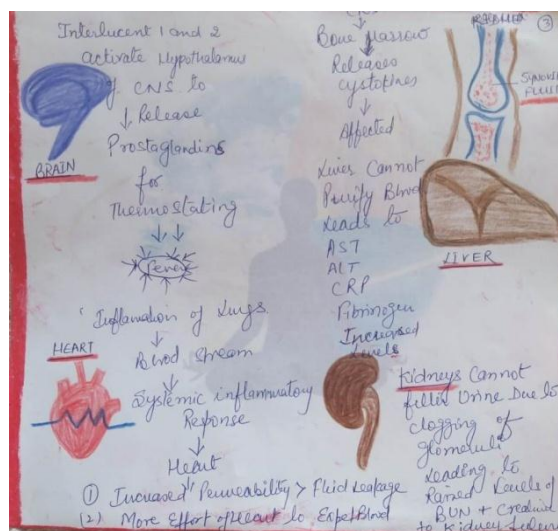 Interlucent 1 and 2
activate Hypothalamus
of CNS to
Release
Prostaglandins
for
Thermostating
Fever
BRAIN
Inflamation of Lungs
Blood stream
Systemic inflammatory
Response
Heart
HEART
① Increased Permeability > Fluid Leakage
(2) More Effort of Heart to Expel Blood
Bone Marrow
Releases
cystophes
Affected
Liver Cannot
Purify Blood
Leads to
AST
ALT
CRP
Fibrinogen
Increased
Levels
③
SYNOVIAL
FLUID
LIVER
Kidneys Cannot
filter Urine Due to
clogging of
glomeruli
Leading to
Raised Levels of
BUN +
to Kidney